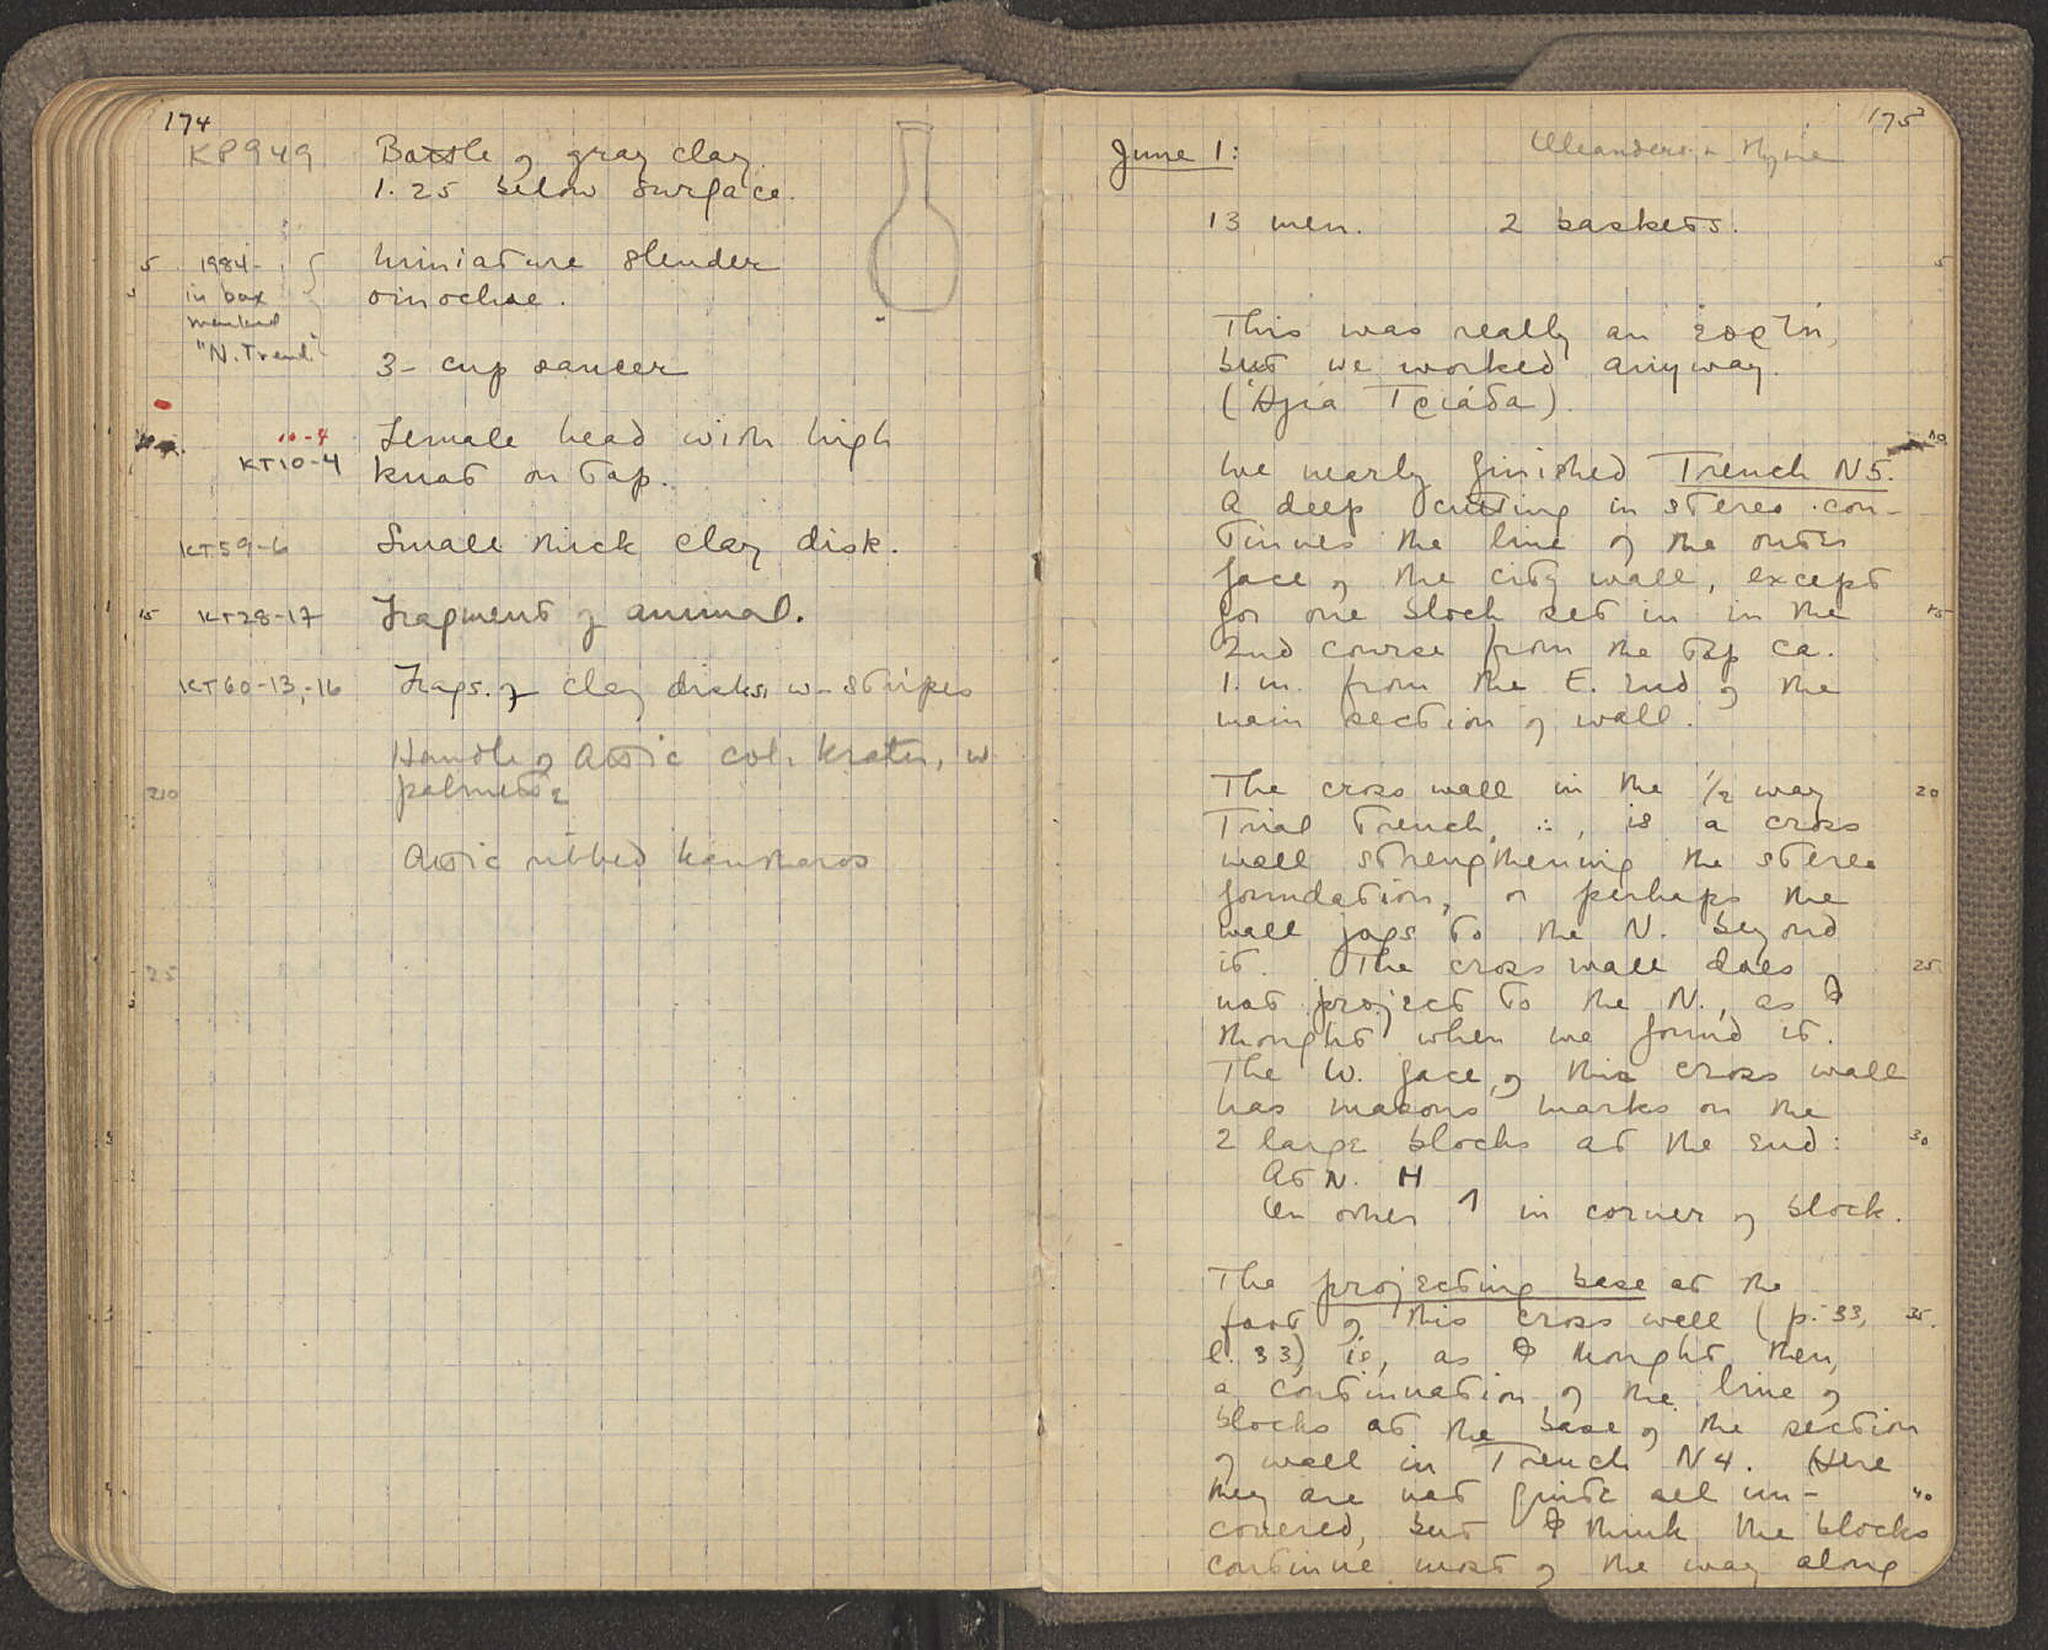 174
KP949 Bottle of gray clay.
1.25 below surface.
5 1984- Miniature slender
in box oinochoe.
marked
"N. Trench"
3-cup saucer
10-4 Female head with high
KT10-4 knot on top.
KT59-6 Small thick clay disk.
15 KT28-17 Fragment of animal.
KT60-13,-16 Frags. of clay disks, w- stripes
Handle of Attic col. krater, w
palmette
20
Attic ribbed kantharos
25
175
June 1: Oleanders
13 men. 2 baskets.
5
This was really an ἑορτή,
but we worked anyway.
(Ἁγία Τριάδα).
10
We nearly finished Trench N5.
A deep cutting in stereo con-
tinues the line of the outer
face of the city wall, except
for one block set in in the 15
2nd course from the top ca.
1. m. from the E. end of the
main section of wall.
The cross wall in the 1/2 way 20
Trial Trench, ∴, is a cross
wall strengthening the stereo
foundation, or perhaps the
wall jogs to the N. beyond
it. The cross wall does 25
not project to the N., as I
thought when we found it.
The W. face of this cross wall
has masons marks on the
2 large blocks at the end: 30
At N. H
On other 1 in corner of block.
The projecting base at the
foot of this cross wall (p. 33, 35
l. 33) is, as I thought then,
a continuation of the line of
blocks at the base of the section
of wall in Trench N4. Here
they are not quite all un- 40
covered, but I think the blocks
continue most of the way along